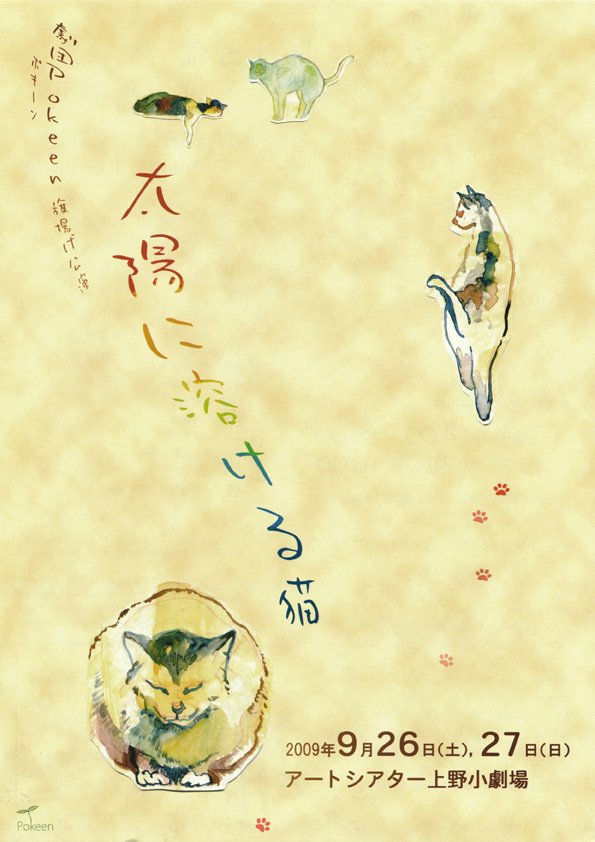 劇団Pokeen 旗揚げ公演
ポキーン
太陽に溶ける猫
2009年9月26日(土), 27日(日)
アートシアター上野小劇場
Pokeen